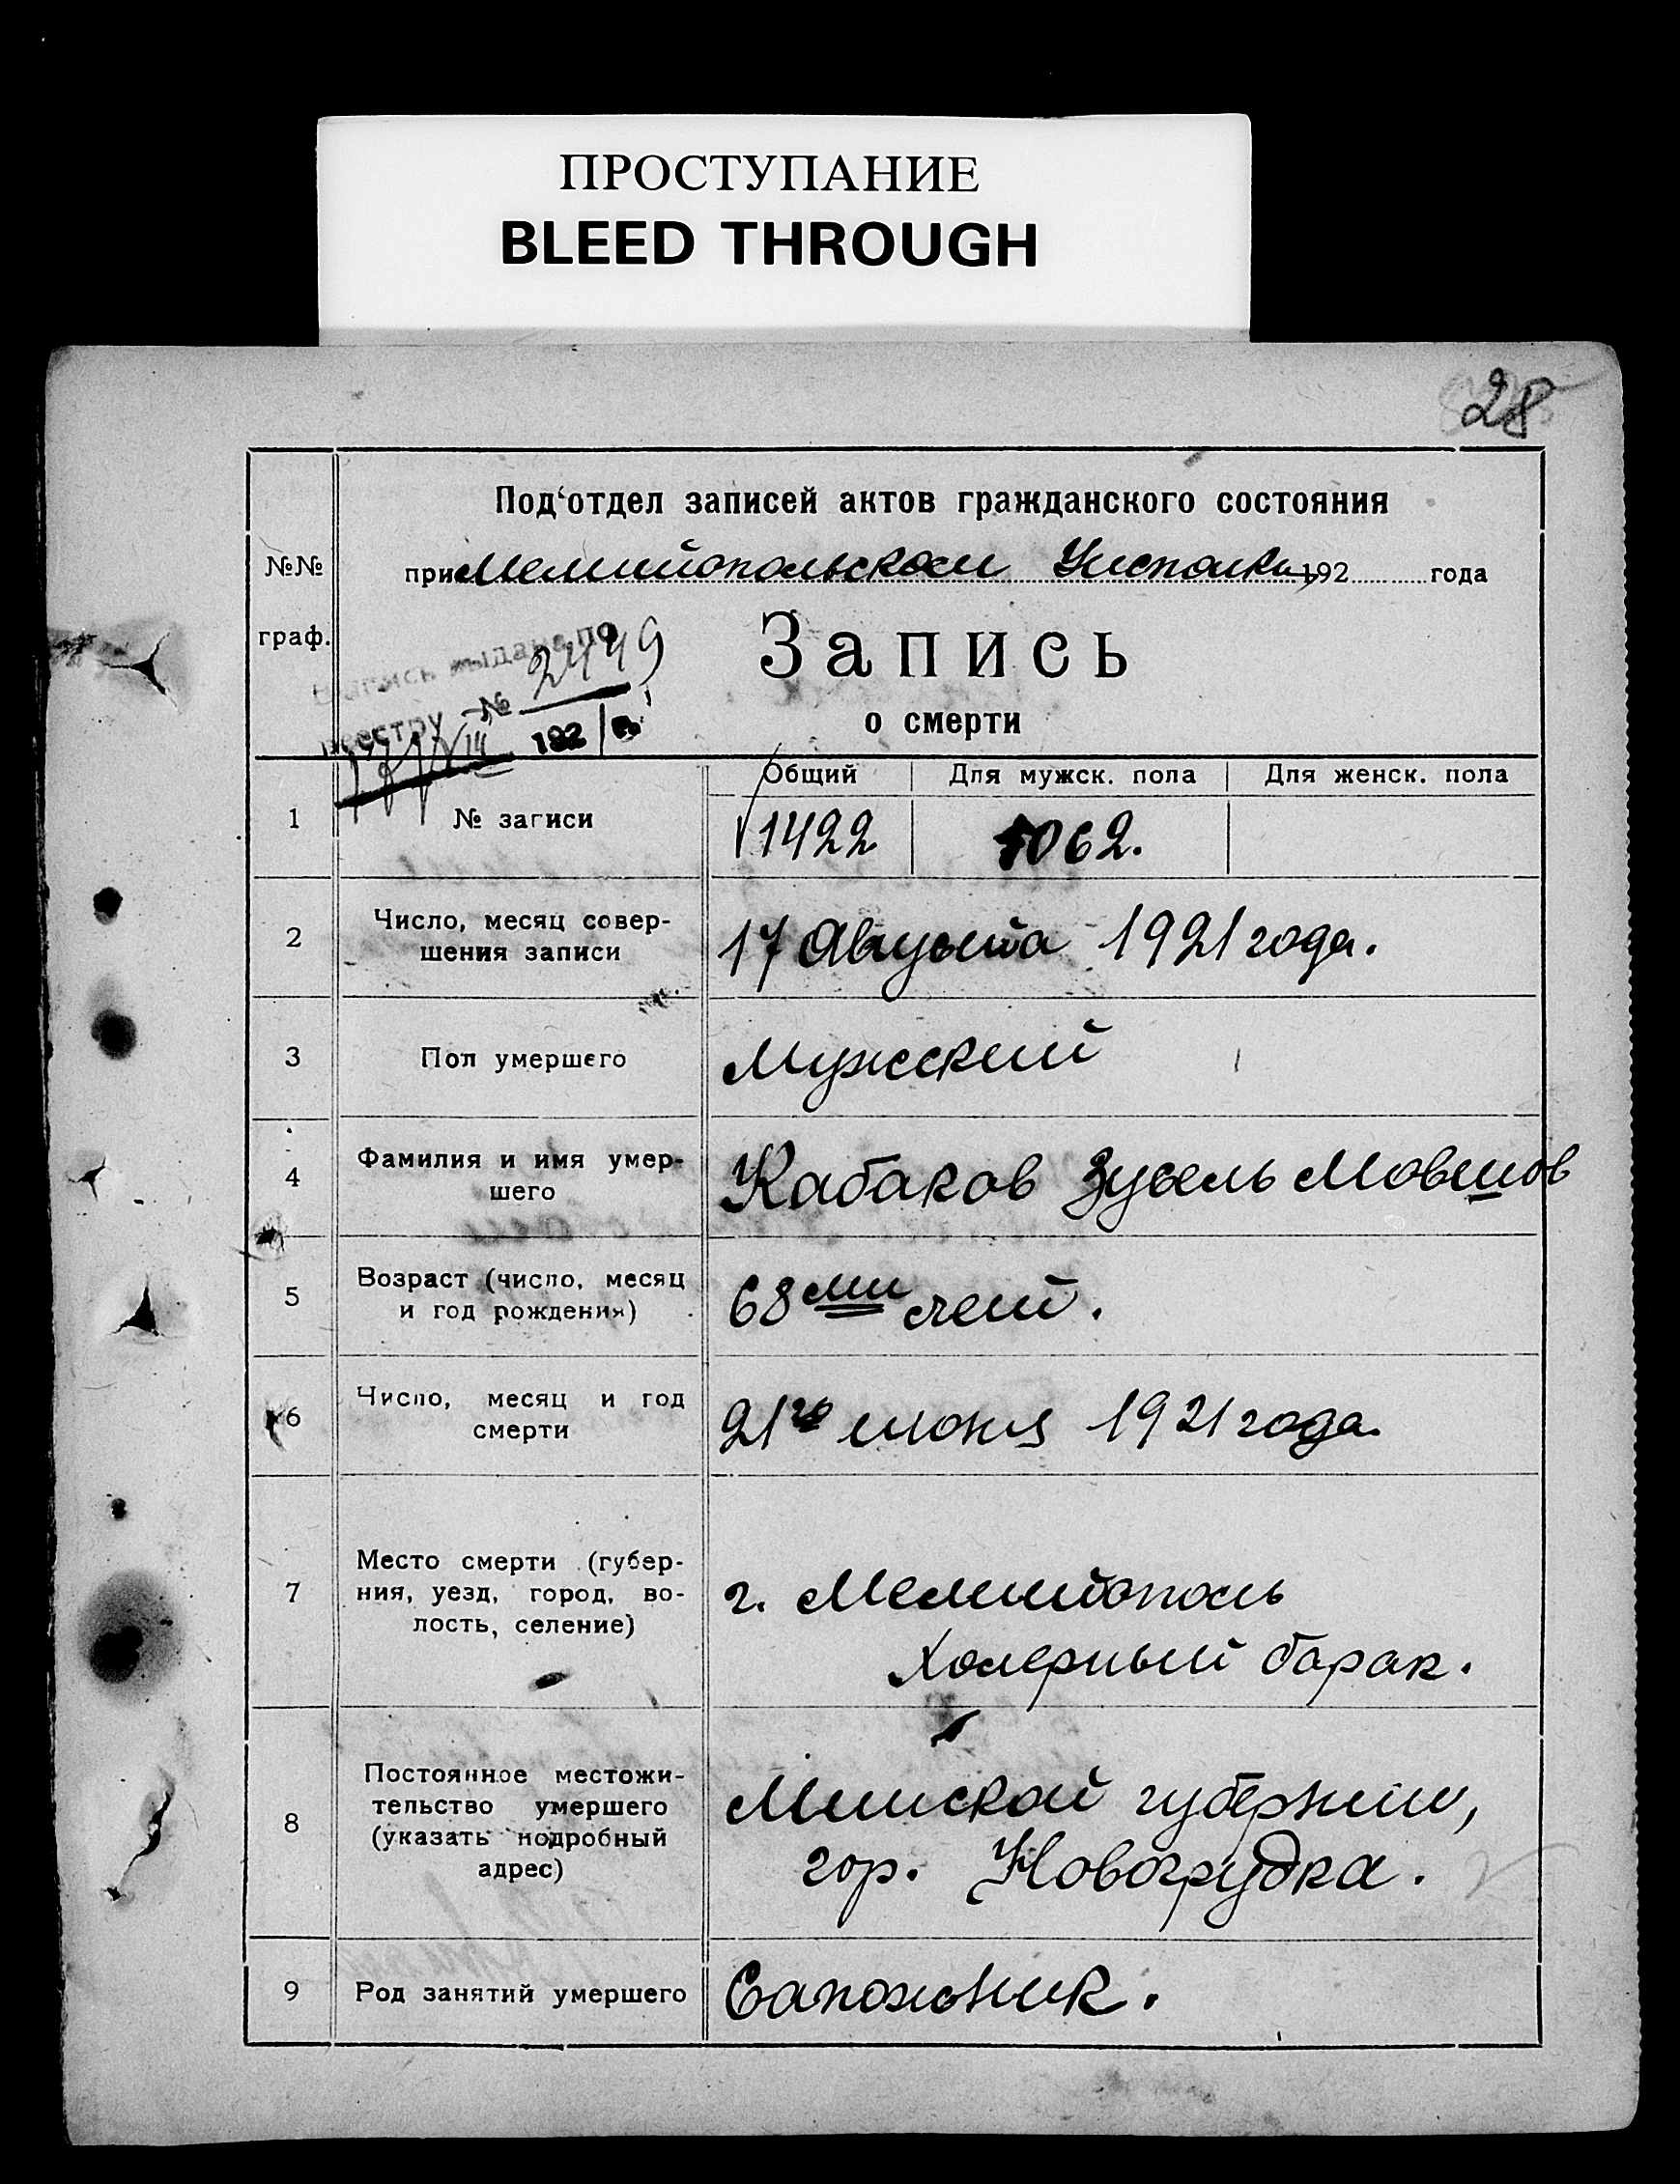 ПРОСТУПАНИЕ
BLEED THROUGH
28
Под‘отдел записей актов гражданского состояния
№№
при Мелитопольском Исполком 192 года
граф.
Запись
Выпись выдана по
реестру № 2449
192
о смерти
Общий Для мужск. пола Для женск. пола
1 № записи 1422 1062.
2 Число, месяц совер-
шения записи
17 Августа 1921 года.
3 Пол умершего Мужский
4 Фамилия и имя умер-
шего
Кабаков Зусель Мовшов
5 Возраст (число, месяц
и год рождения)
68ми лет.
6 Число, месяц и год
смерти
21го июня 1921 года.
7 Место смерти (губер-
ния, уезд, город, во-
лость, селение)
г. Мелитополь
Холерный барак.
8 Постоянное местожи-
тельство умершего
(указать подробный
адрес)
Минской губернии,
гор. Новогрудка.
9 Род занятий умершего Сапожник.